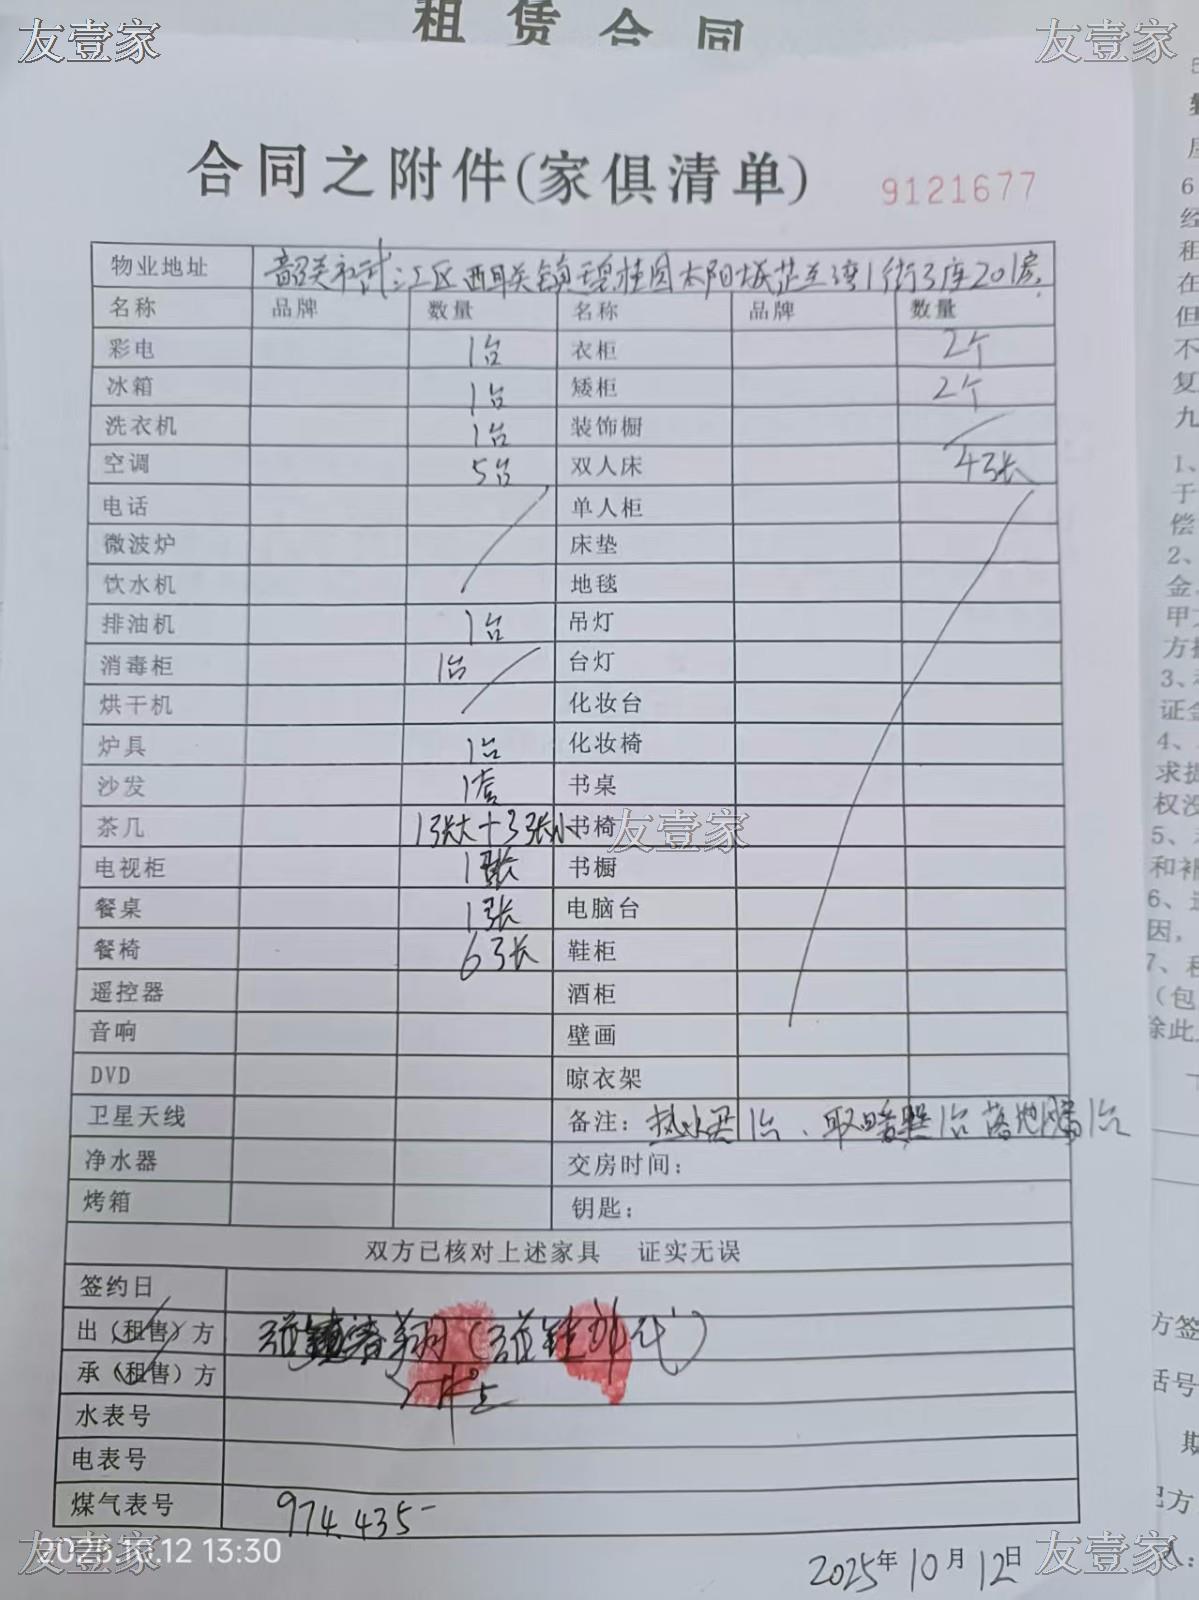 租赁合同
友壹家
友壹家
合同之附件(家俱清单)
9121677
物业地址 韶关市武江区西联关镇碧桂园太阳城芷兰湾1街3座201房.
名称 品牌 数量 名称 品牌 数量
彩电 1台 衣柜 2个
冰箱 1台 矮柜 2个
洗衣机 1台 装饰橱
空调 5台 双人床 4张
电话 单人柜
微波炉 床垫
饮水机 地毯
排油机 1台 吊灯
消毒柜 1台 台灯
烘干机 化妆台
炉具 1台 化妆椅
沙发 1套 书桌
茶几 1张大+3张小 书椅
友壹家
电视柜 1张 书橱
餐桌 1张 电脑台
餐椅 6张 鞋柜
遥控器 酒柜
音响 壁画
DVD 晾衣架
卫星天线 备注：热水器1台、取暖器1台 落地扇1台
净水器 交房时间：
烤箱 钥匙：
双方已核对上述家具 证实无误
签约日
出（租售）方
承（租售）方
水表号
电表号
煤气表号 974.435
2025年10月12日
2025.10.12 13:30
友壹家
友壹家